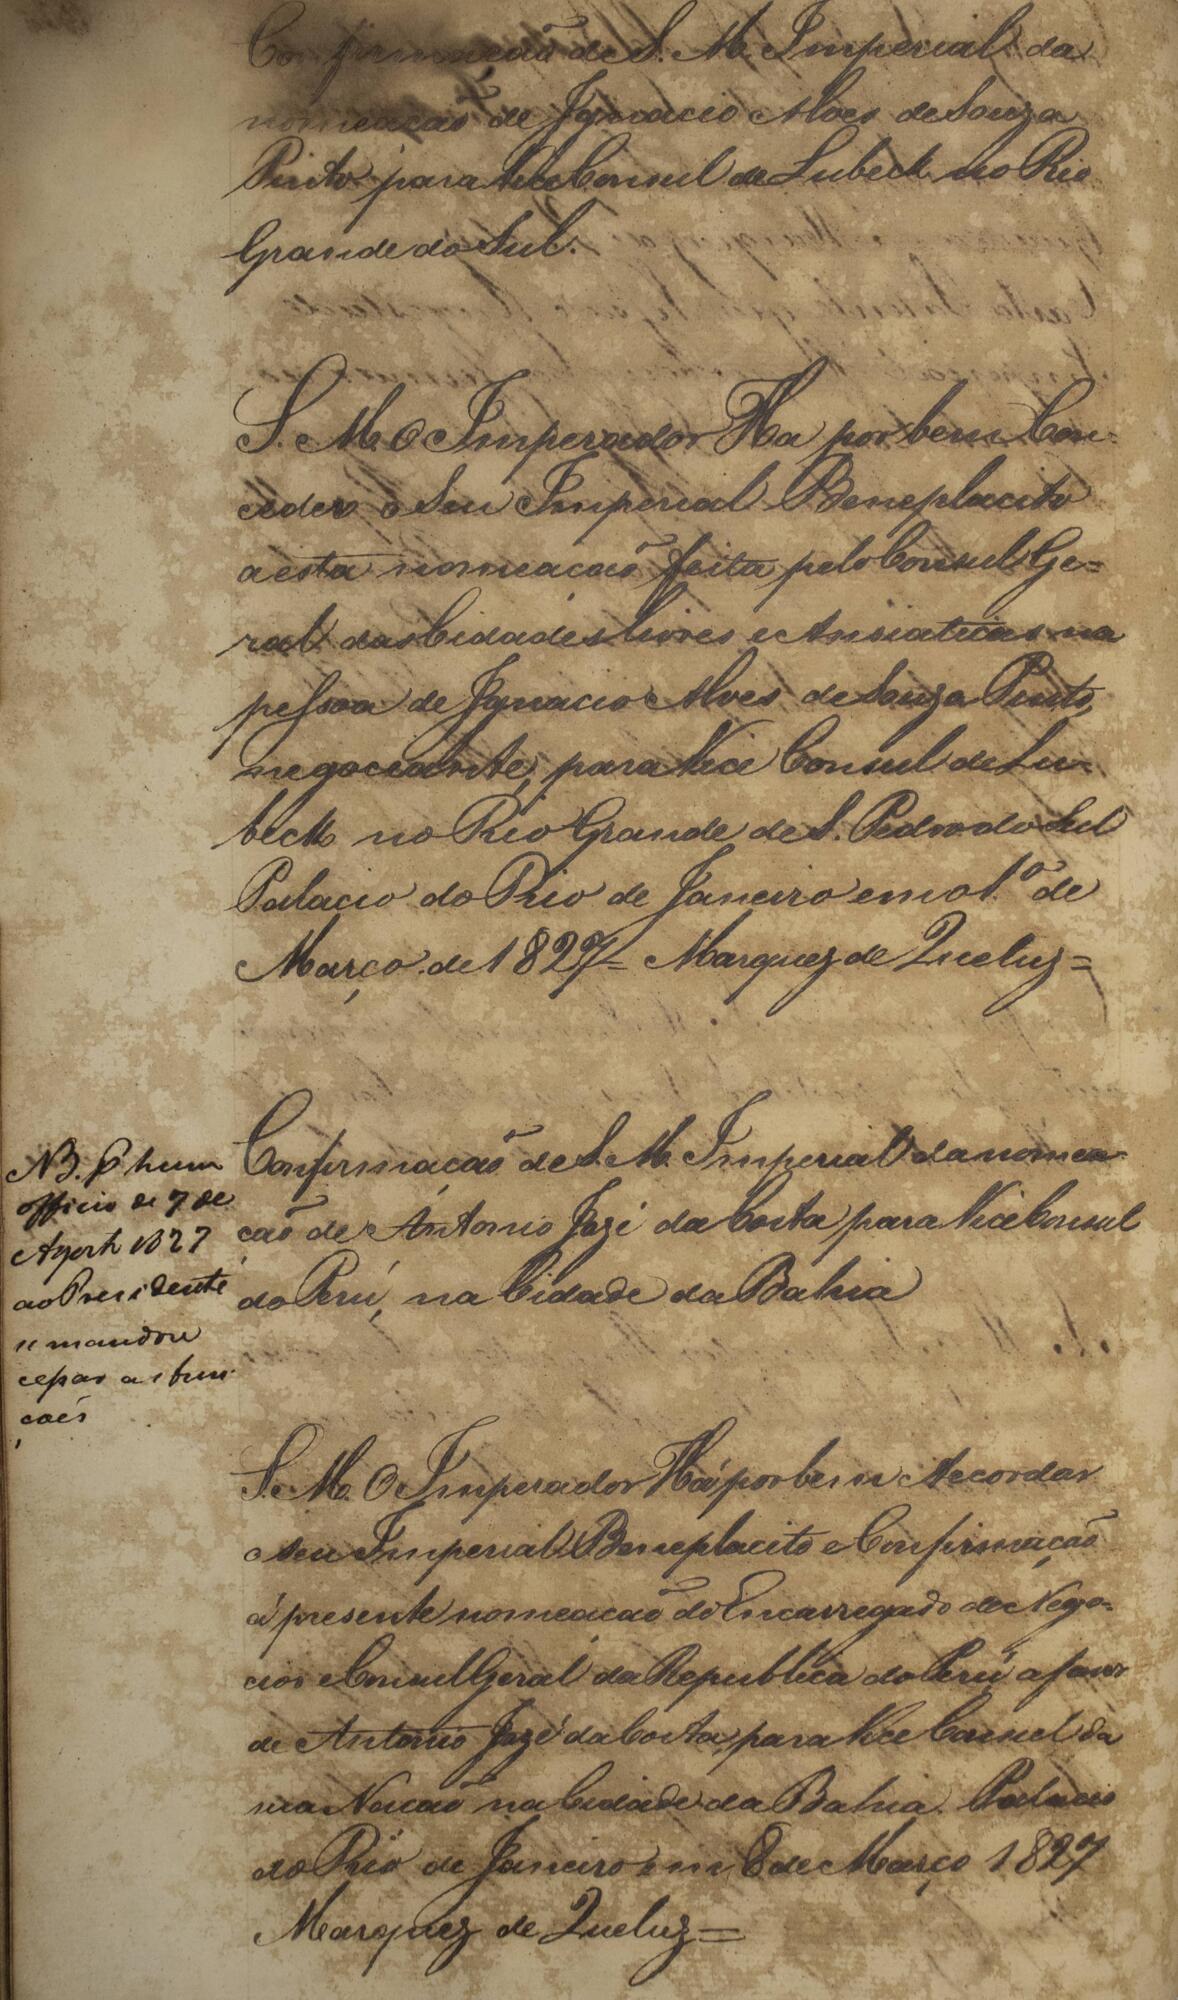 Confirmação de S. M. Imperial da
nomeação de Ignacio Alves de Souza
Pinto para Vice Consul de Lubeck no Rio
Grande do Sul.
S. M. O Imperador Ha por bem Con-
ceder o Seu Imperial Beneplacito
a esta nomeação feita pelo Consul Ge=
ral das Cidades livres e Ansiaticas na
pessoa de Ignacio Alves de Souza Pinto,
negociante, para Vice Consul de Lu-
beck no Rio Grande de S. Pedro do Sul
Palacio do Rio de Janeiro em o 1.º de
Março de 1827= Marquez de Queluz=
Confirmação de S. M. Imperial da nomea-
ção de Antonio Jozé da Costa para Vice Consul
do Perú, na Cidade da Bahia
N B. Por hum
officio de 7 de
Agosto 1827
ao Presidente
se mandou
cepar as fun-
ções
S. M. O Imperador Há por bem Accordar
o seu Imperial Beneplacito e Confirmação
á presente nomeação do Encarregado de Nego-
cios e Consul Geral da Republica do Perú a favor
de Antonio Jozé da Costa, para Vice Consul da
sua Nação na Cidade da Bahia. Palacio
do Rio de Janeiro em 8 de Março 1827
Marquez de Queluz=